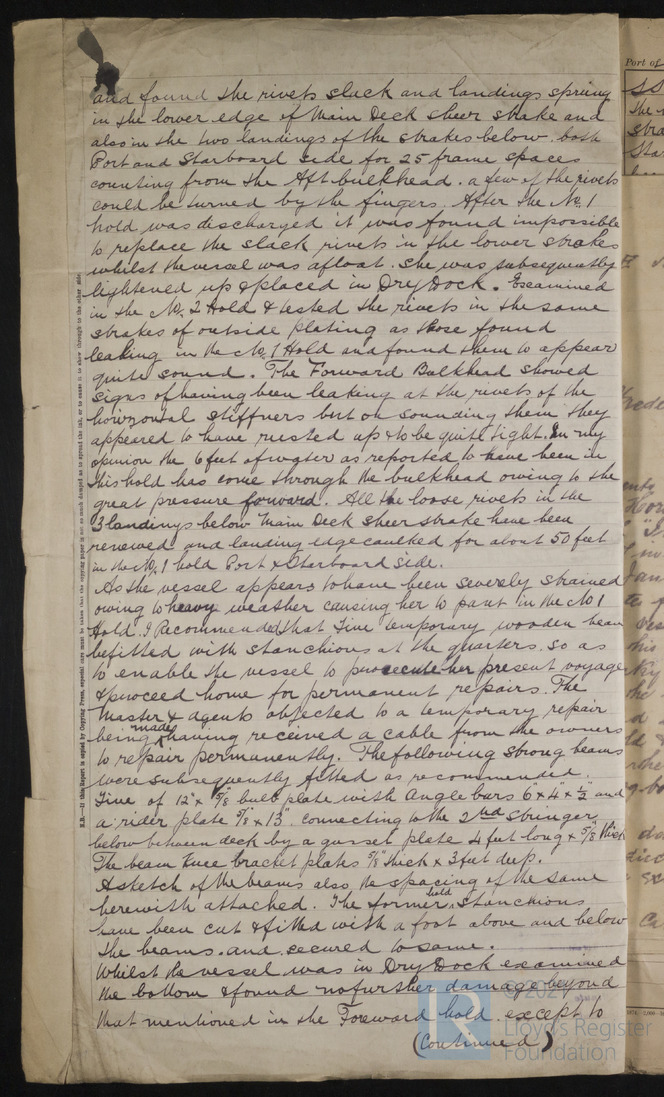 and found the rivets slack and landings sprung
in the lower edge of Main Deck sheer strake and
also in the two landings of the strakes below both
Port and Starboard side for 25 frame spaces
counting from the Aft bulkhead. a few of the rivets
could be turned by the fingers. After the No. 1
hold was discharged it was found impossible
to replace the slack rivets in the lower strakes
whilst the vessel was afloat. She was subsequently
lightened up & placed in Dry Dock. Examined
in the No. 2 Hold & tested the rivets in the same
strakes of outside plating as those found
leaking in the No. 1 Hold and found them to appear
quite sound. The Forward Bulkhead showed
signs of having been leaking at the rivets of the
horizontal stiffners but on sounding them they
appeared to have rusted up & to be quite tight. In my
opinion the 6 feet of water as reported to have been in
this hold has come through the bulkhead owing to the
great pressure forward. All the loose rivets in the
3 landings below Main Deck sheer strake have been
renewed and landing edge caulked for about 50 feet
in the No. 1 hold Port & Starboard side.
As the vessel appears to have been severely strained
owing to heavy weather causing her to pant in the No 1
Hold. I Recommended that Five temporary wooden beams
be fitted with stanchions at the quarters. so as
to enable the vessel to prosecute her present voyage
& proceed home for permanent repairs. The
Master & agents objected to a temporary repair
being made, having received a cable from the owners
to repair permanently. The following strong beams
were subsequently fitted as recommended.
Five of 12" x 5/8 bulb plate with Angle bars 6 x 4 x 1/2 and
a rider plate 5/8 x 13". connecting to the 2nd stringer
below between deck by a gusset plate 4 feet long x 5/8 thick
The beam knee bracket plates 5/8 thick x 3 feet deep.
A sketch of the beams also the spacing of the same
herewith attached. The former hold Stanchions
have been cut & fitted with a foot above and below
the beams. and secured to same.
Whilst the vessel was in Dry Dock examined
the bottom & found no further damage beyond
that mentioned in the Foreward hold. except to
(Continued)
N.B.—If this Report is copied by Copying Press, especial care must be taken that the copying paper is not so much damped as to spread the ink, or to cause it to show through to the other side.
Port of
SS
Lloyd's Register
Foundation